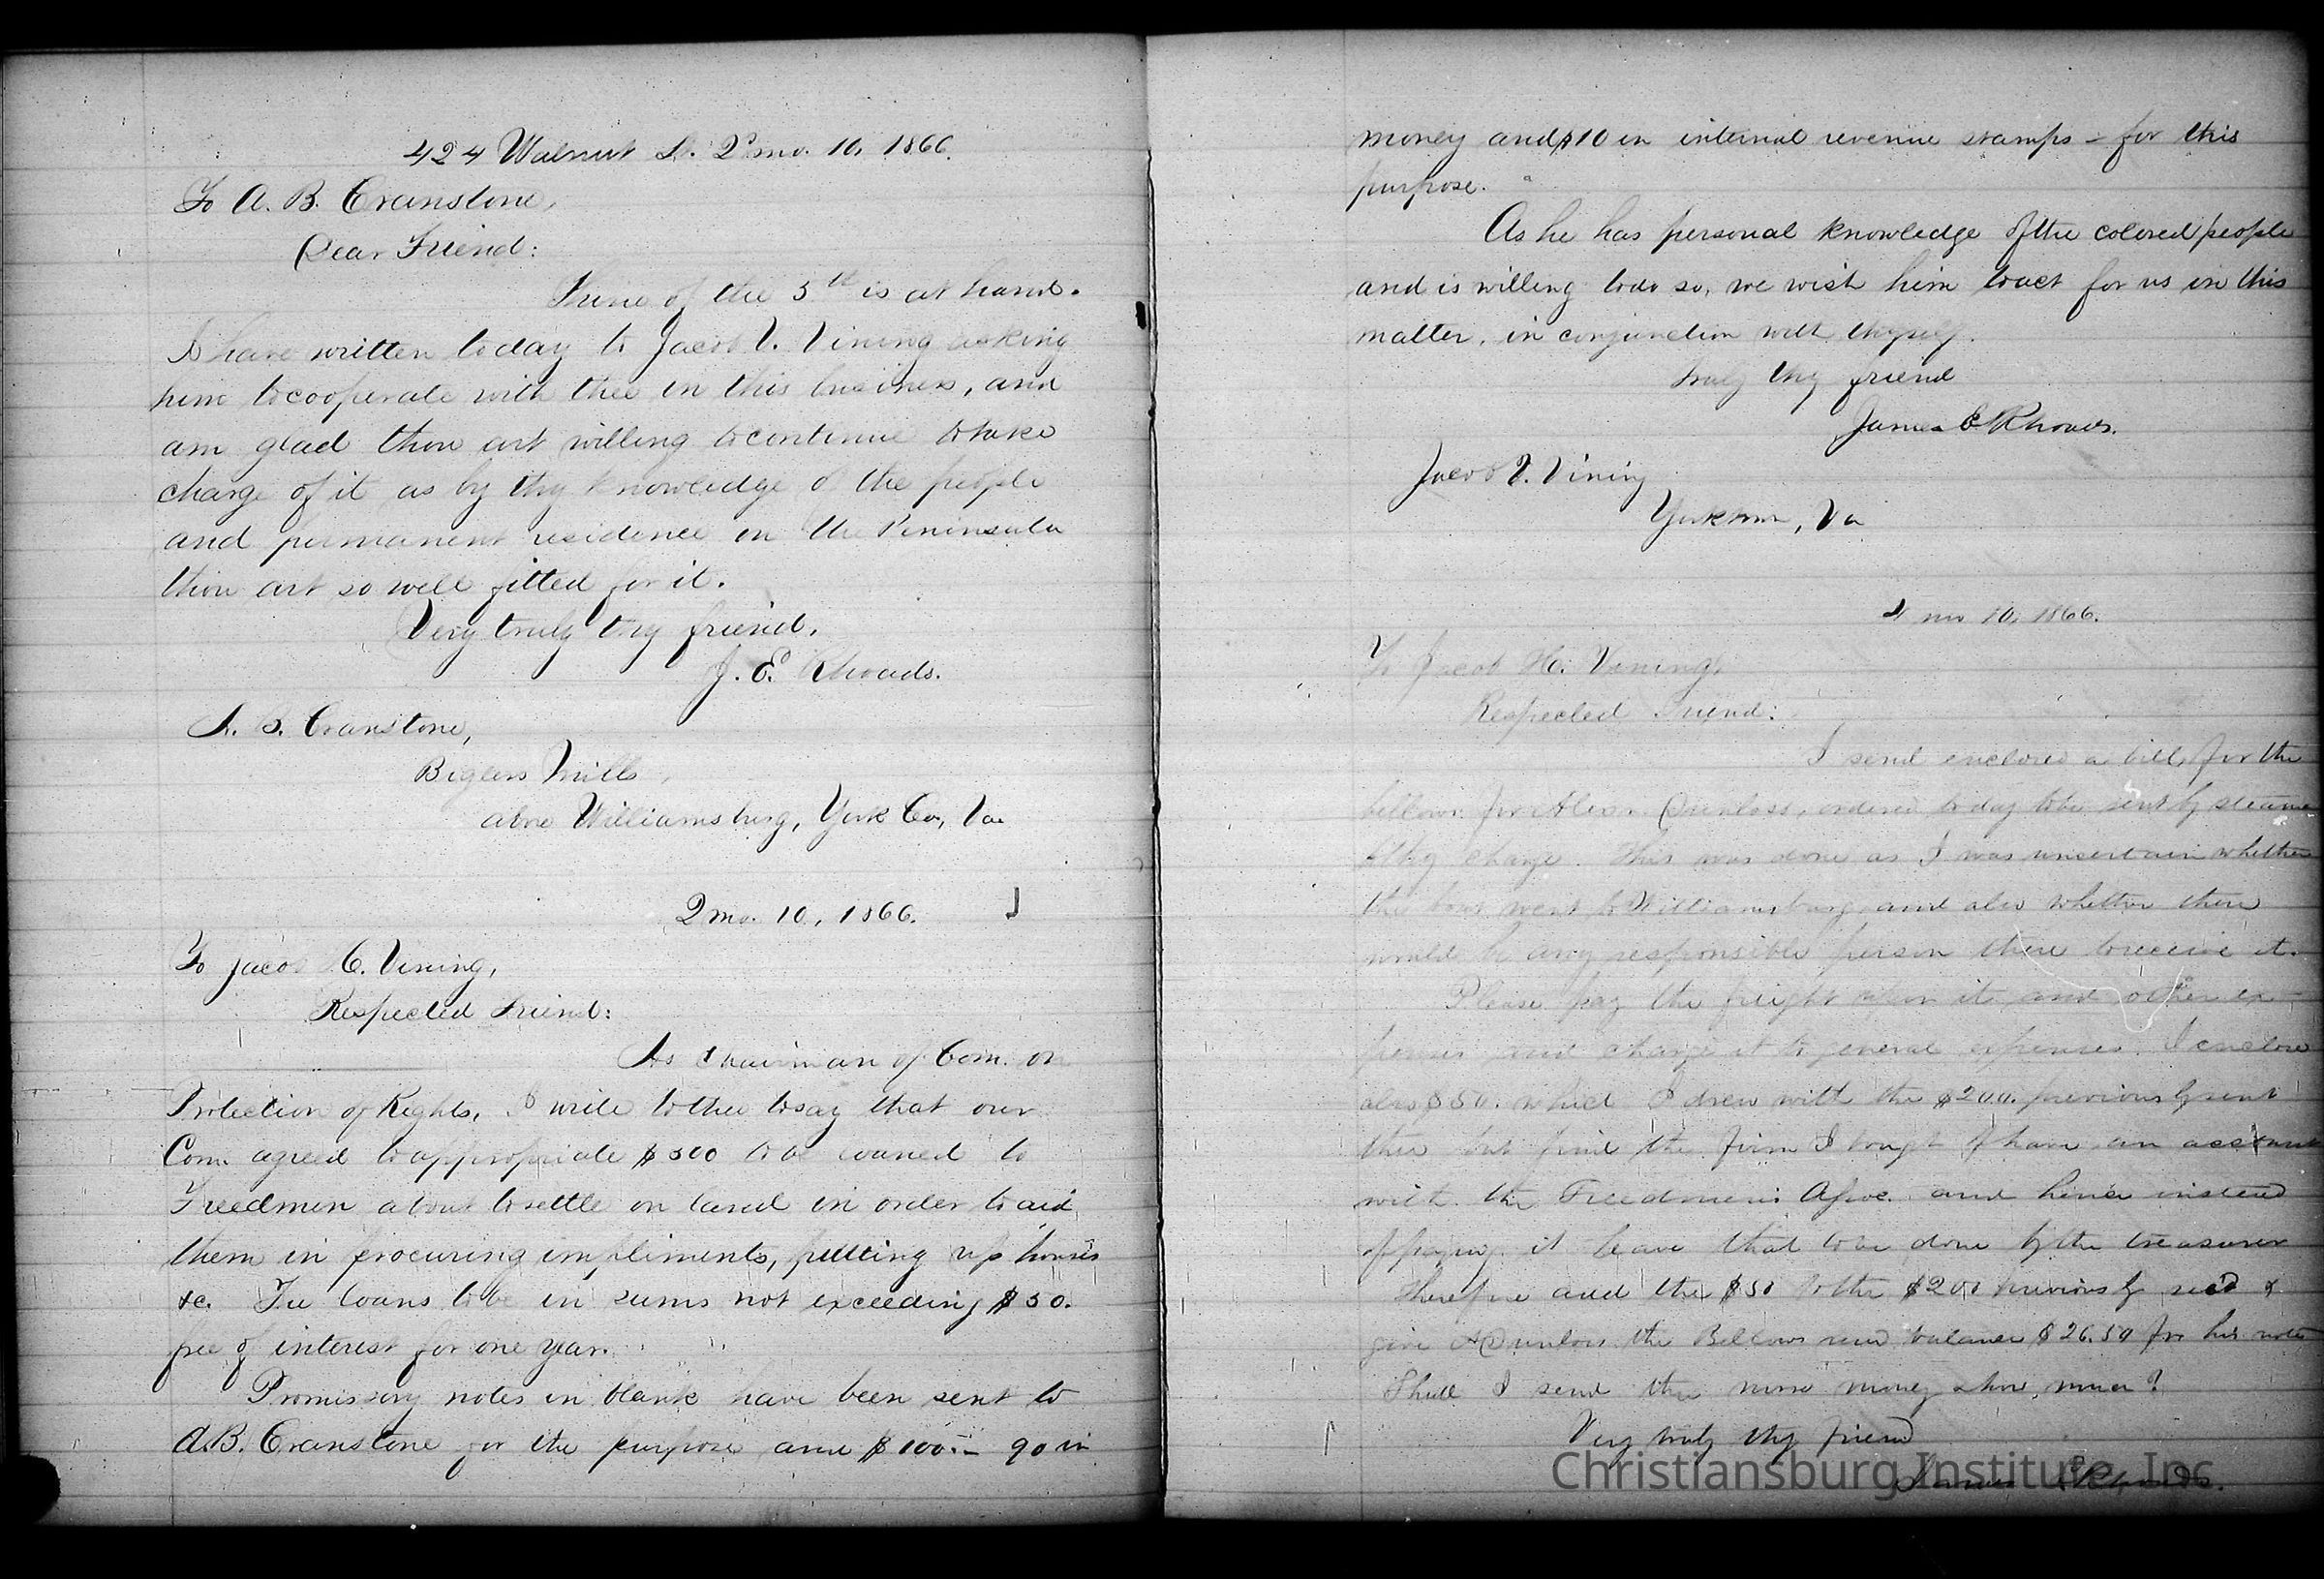 424 Walnut St. 2 mo. 10, 1866.
To A. B. Cranstone,
Dear Friend:
Thine of the 5th is at hand.
I have written today to Jacob V. Vining asking
him to cooperate with thee in this business, and
am glad thou art willing to continue to take
charge of it as by thy knowledge of the people
and permanent residence on the Peninsula
thou art so well fitted for it.
Very truly thy friend,
J. E. Rhoads.
A. B. Cranstone,
Biglers Mills,
above Williamsburg, York Co., Va
2 mo. 10, 1866.
To Jacob H. Vining,
Respected Friend:
As chairman of Com. on
Protection of Rights, I write to thee to say that our
Com. agreed to appropriate $500 to be loaned to
Freedmen about to settle on land in order to aid
them in procuring impliments, putting up houses
&c. The loans to be in sums not exceeding $50.
free of interest for one year.
Promissory notes in blank have been sent to
A.B. Cranstone for the purpose and $100.— 90 in
money and $10 in internal revenue stamps — for this
purpose.
As he has personal knowledge of the colored people
and is willing to do so, we wish him to act for us in this
matter, in conjunction with thyself.
Truly thy friend
James E. Rhoads.
Jacob V. Vining
Yorktown, Va
mo 10, 1866.
To Jacob H. Vining,
Respected Friend:
I send enclosed a bill for the
bellows for Alex. Dunloss, ordered today to be sent by steamer
to thy charge. This was done as I was uncertain whether
the boat went to Williamsburg, and also whether there
would be any responsible person there to receive it.
Please pay the freight upon it and other ex-
penses and charge it to general expenses. I enclose
also $50. which I drew with the $200. previously sent
thee but find the firm I bought of have an account
with the Freedmen's Assoc. and hence instead
of paying it leave that to be done by the treasurer
Therefore add the $50 to the $200 previously rec'd &
give A Dunloss the Bellows and balance $26.50 for his note
Shall I send thee more money above, more?
Very truly thy friend
James E Rhoads.
Christiansburg Institute, Inc